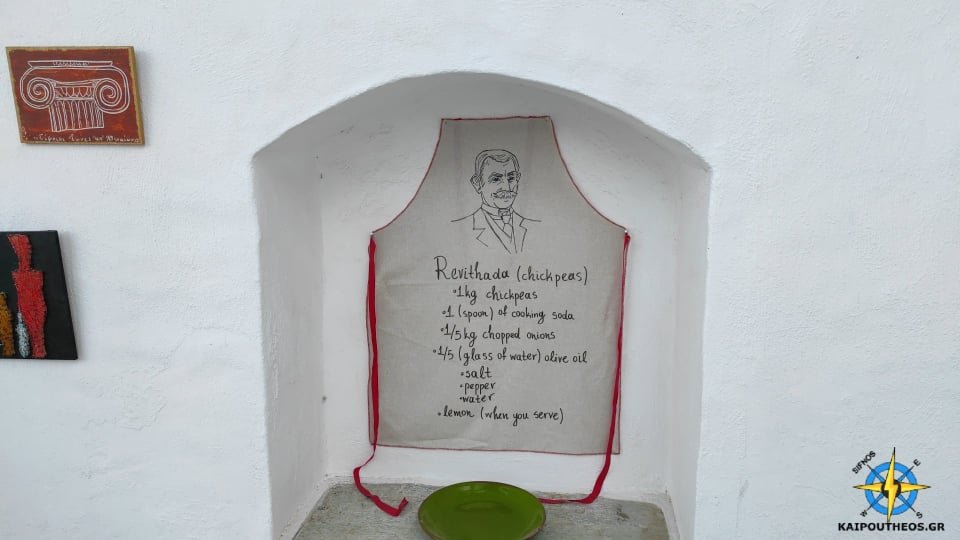 Revithada (chickpeas)
•1kg chickpeas
•1 (spoon) of cooking soda
•1/5 kg chopped onions
•1/5 (glass of water) olive oil
•salt
•pepper
•water
•lemon (when you serve)
SIFNOS
E
W
S
KAIPOUTHEOS.GR